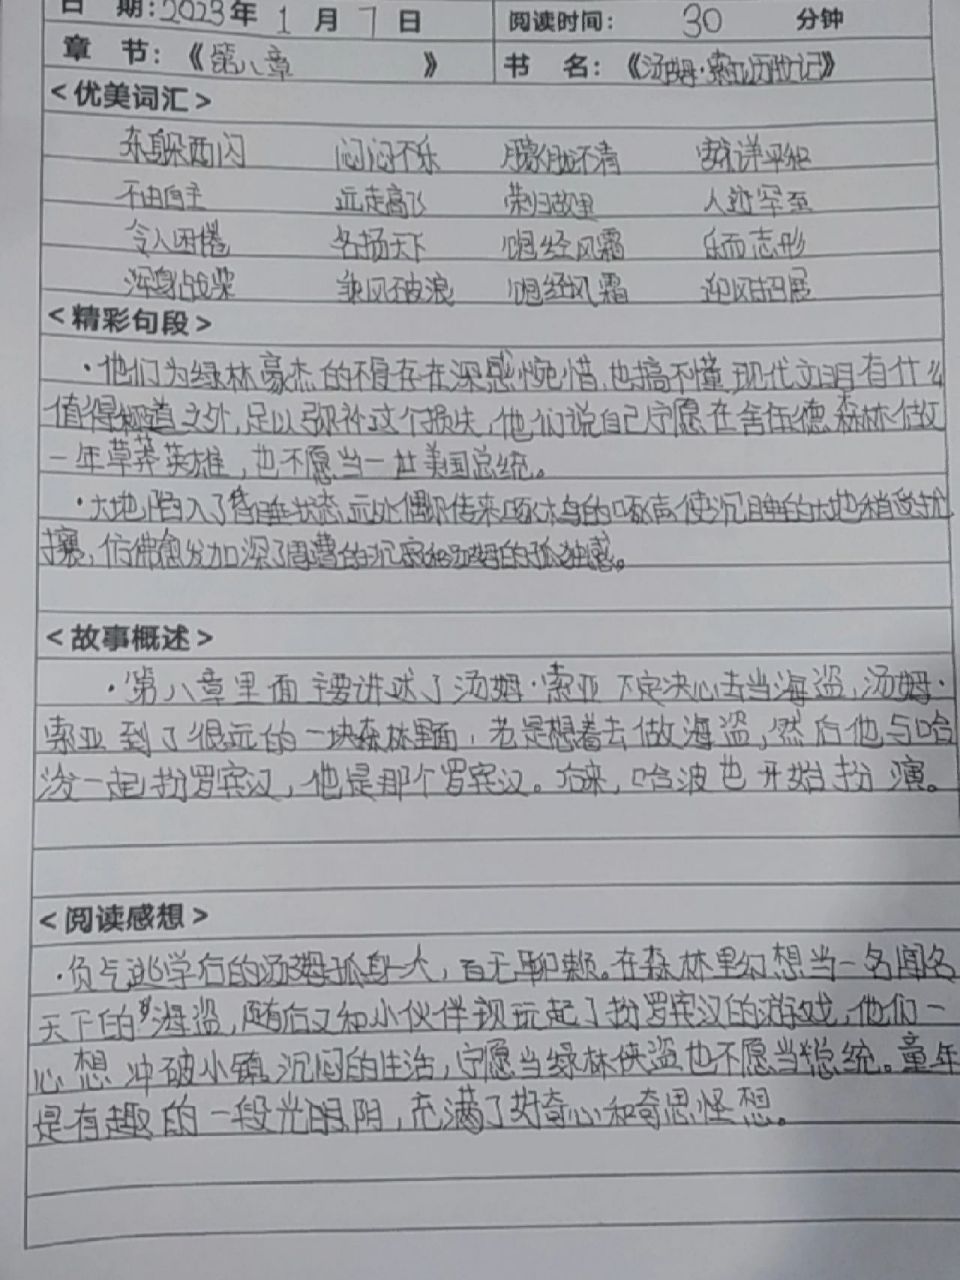 日 期:2023年 1 月 7 日 阅读时间: 30 分钟
章 节:《第八章》 书 名:《汤姆·索亚历险记》
<优美词汇>
东躲西闪 闷闷不乐 朦胧不清 安详平和
不由自主 远走高飞 荣归故里 人迹罕至
令人困倦 名扬天下 饱经风霜 乐而忘形
浑身战栗 乘风破浪 饱经风霜 迎风招展
<精彩句段>
·他们为绿林豪杰的不复存在深感惋惜,也搞不懂现代文明有什么
值得知道之外,足以弥补这个损失,他们说自己宁愿在舍伍德森林做
一年草莽英雄,也不愿当一世美国总统。
·大地陷入了昏睡状态,远处偶尔传来啄木鸟的啄声使沉睡的大地稍受扰
攘,仿佛愈发加深了周遭的沉寂和汤姆的孤独感。
<故事概述>
·第八章里面主要讲述了汤姆·索亚下定决心去当海盗,汤姆·
索亚到了很远的一块森林里面,老是想着去做海盗,然后他与哈
波一起扮罗宾汉,他是那个罗宾汉。后来,哈波也开始扮演。
<阅读感想>
·负气逃学后的汤姆孤身一人,百无聊赖。在森林里幻想当一名闻名
天下的海盗,随后又和小伙伴玩起了扮罗宾汉的游戏,他们一
心想冲破小镇沉闷的生活,宁愿当绿林侠盗也不愿当总统。童年
是有趣的一段光阴,充满了好奇心和奇思怪想。